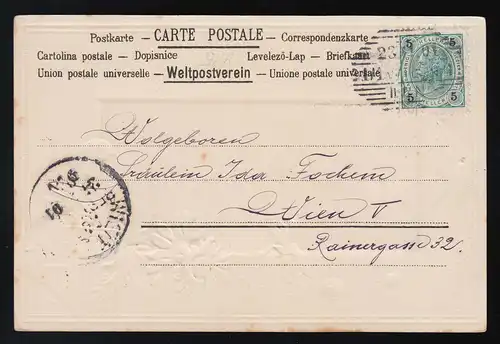 Postkarte — CARTE POSTALE — Correspondenzkarte
Cartolina postale — Dopisnice Levelező-Lap — Briefkaart
Union postale universelle — Weltpostverein — Unione postale universale
5 5
5 5
Wolgeboren
Fräulein Ida Fochem
Wien V
Rainergasse 32.